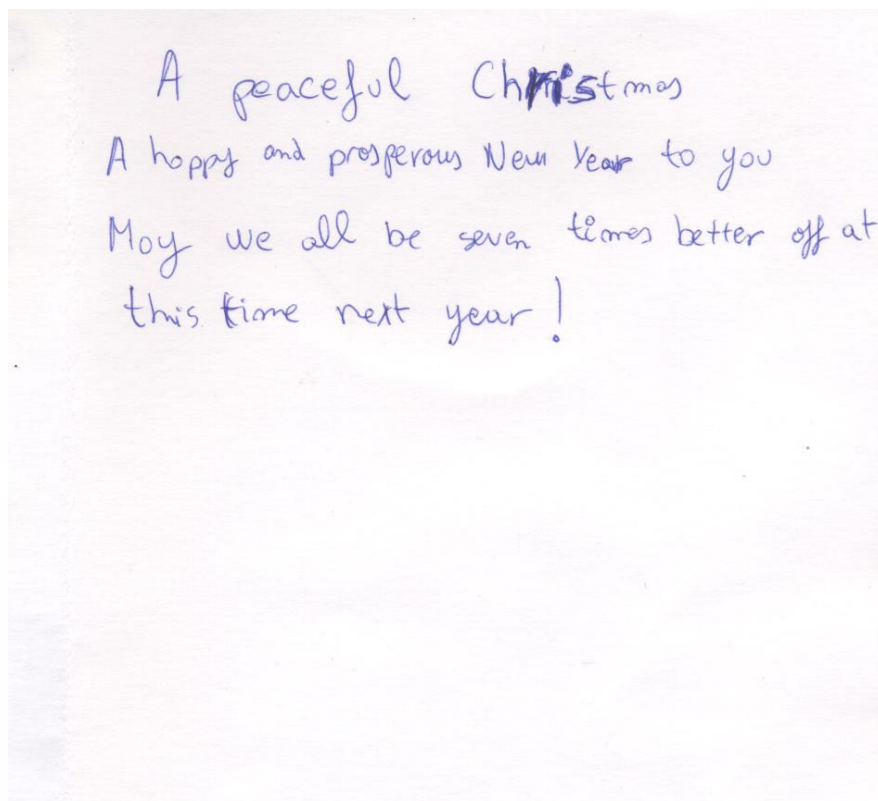 A peaceful Christmas
A happy and prosperous New Year to you
May we all be seven times better off at
this time next year!